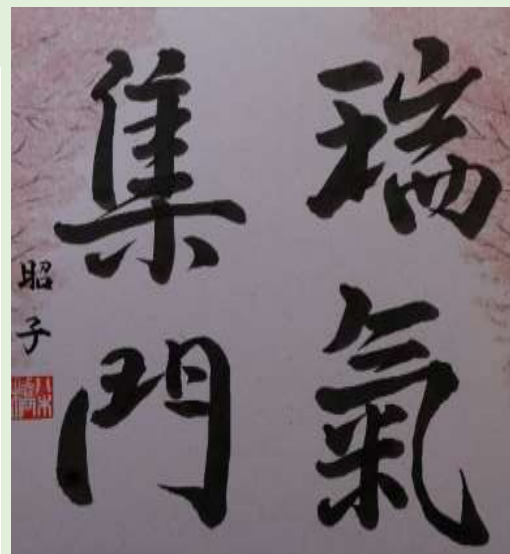 瑞氣
集門
昭子